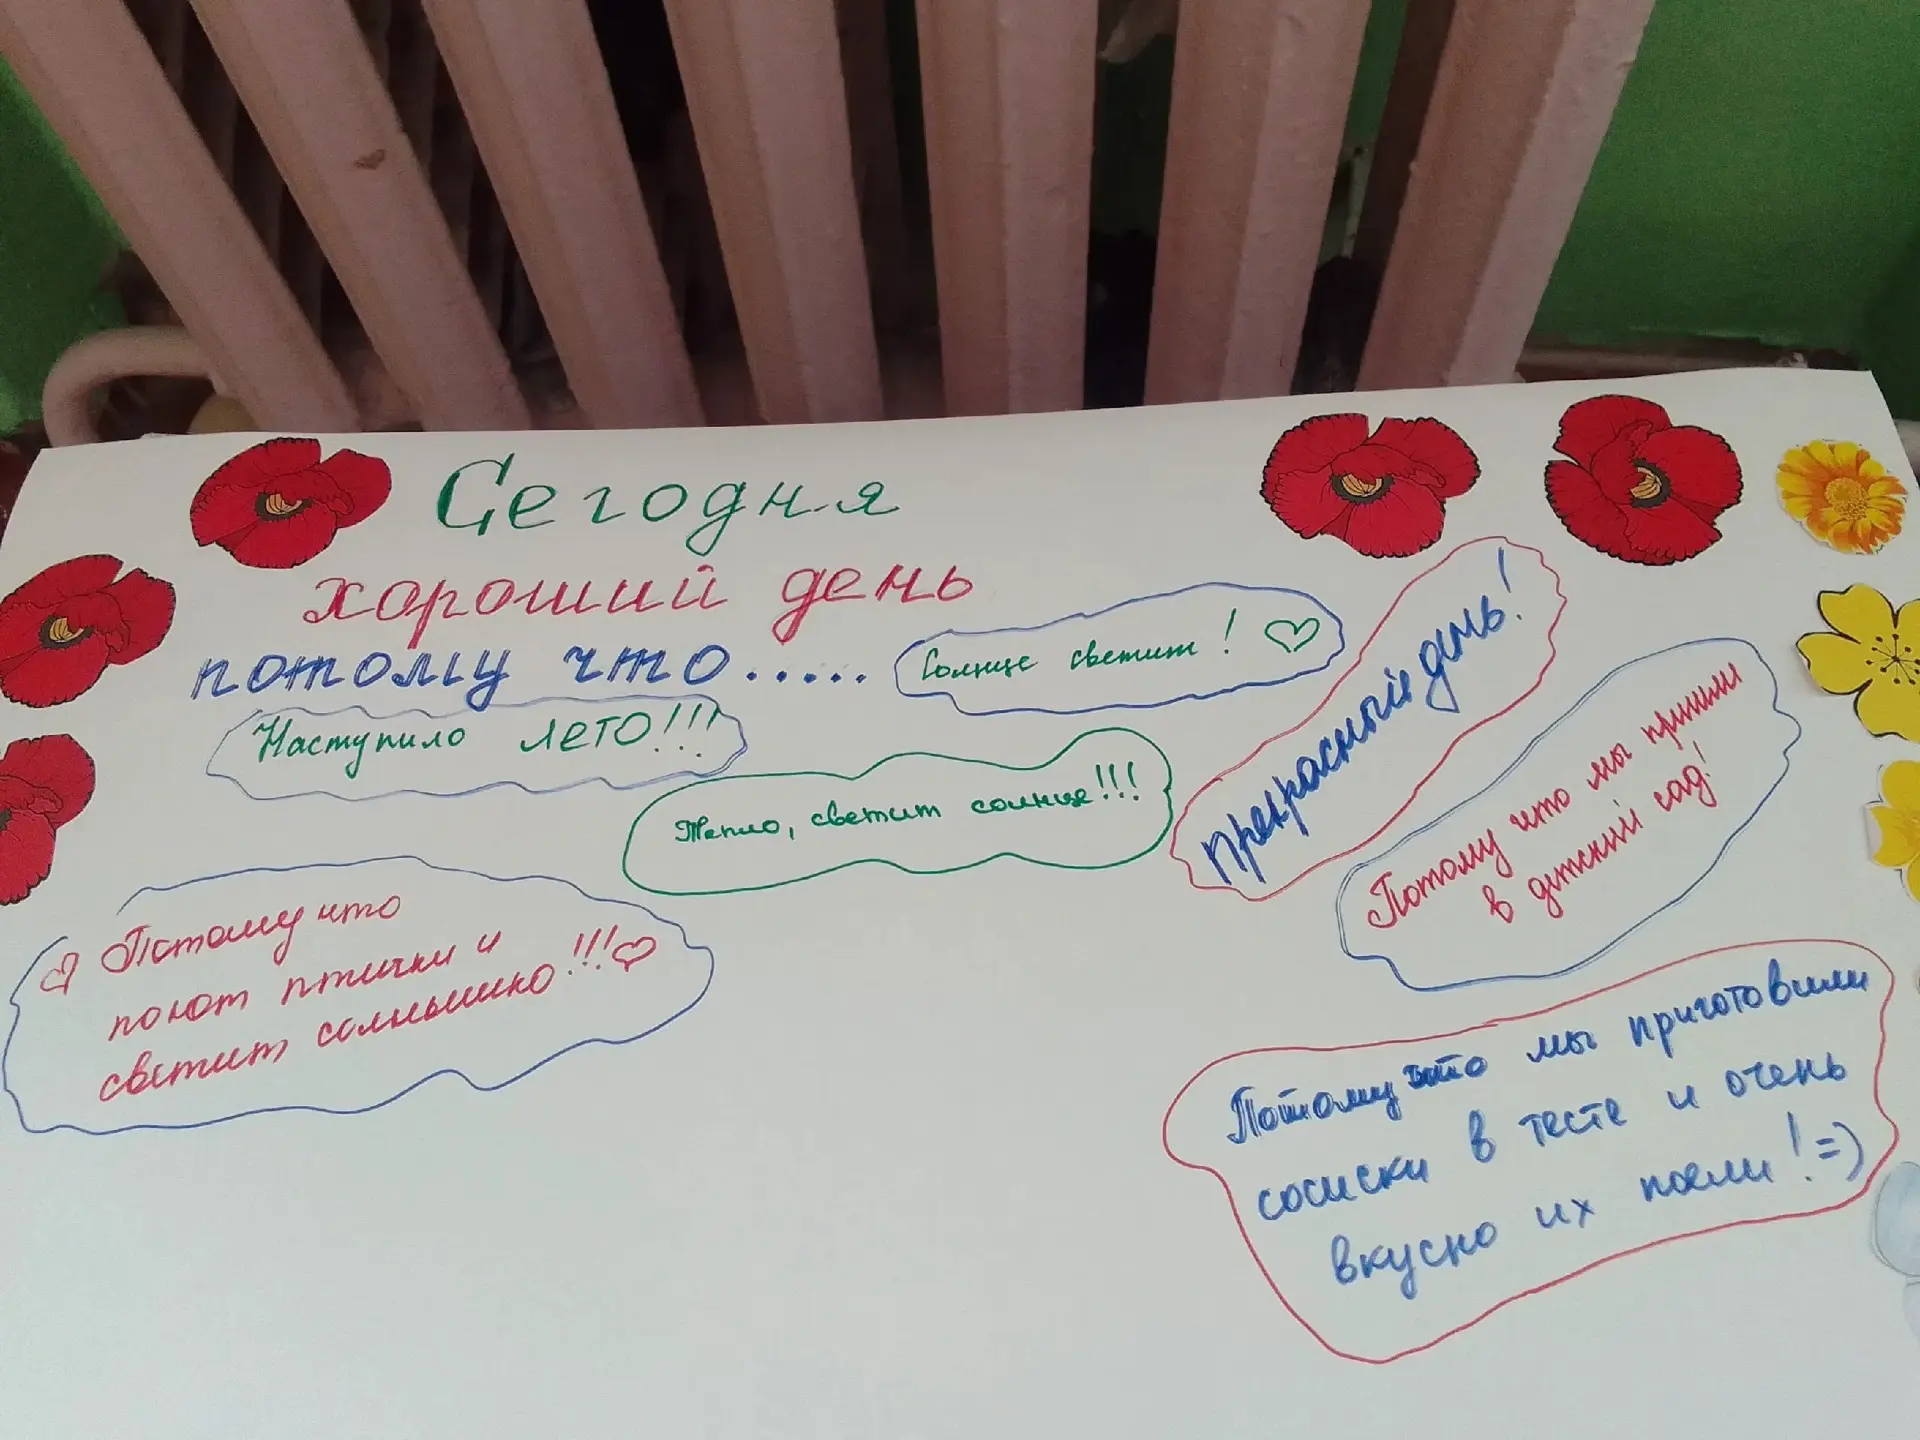 Сегодня
хороший день
потому что.....
Солнце светит!
Наступило ЛЕТО!!!
Тепло, светит солнце!!!
Прекрасный день!
Потому что мы пришли
в детский сад!
Потому что
поют птички и
светит солнышко!!!
Потому что мы приготовили
сосиски в тесте и очень
вкусно их поели! =)